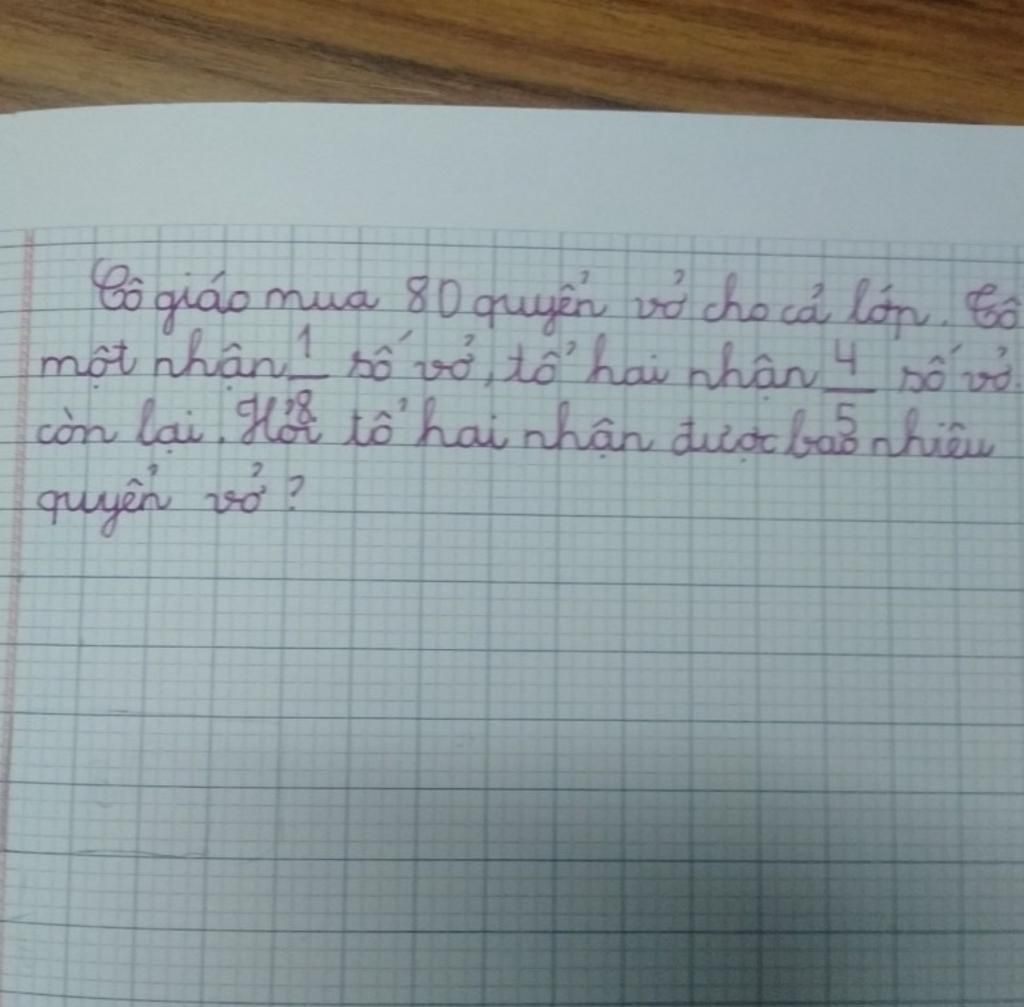 Cô giáo mua 80 quyển vở cho cả lớp. Tổ
một nhận 1/8 số vở, tổ hai nhận 4/5 số vở
còn lại. Hỏi tổ hai nhận được bao nhiêu
quyển vở?